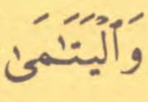 وَٱلْيَتَـٰمَىٰ